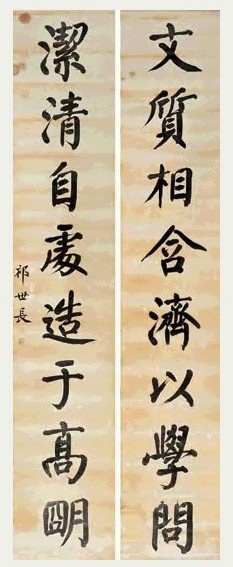 文質相含濟以學問
潔清自處造于髙朙
祁世長